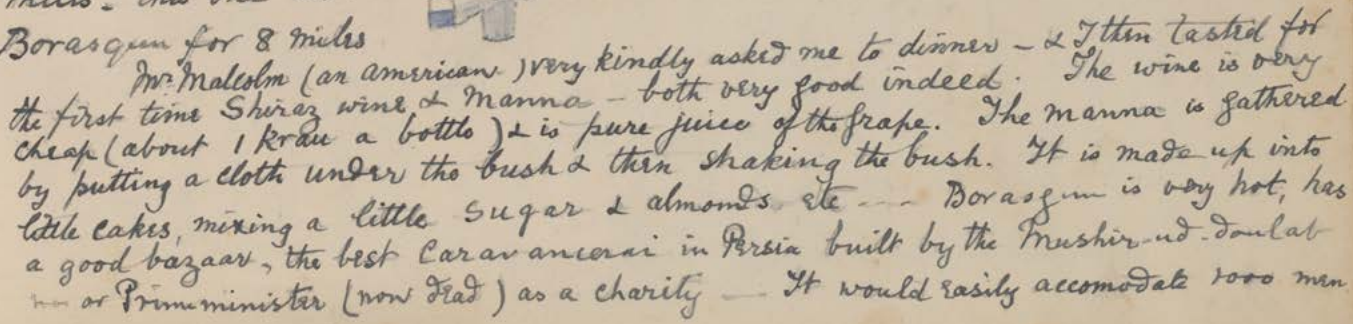 Borasgun for 8 miles
Mr. Malcolm (an american) very kindly asked me to dinner - & I then tasted for
the first time Shiraz wine & Manna - both very good indeed. The wine is very
cheap (about 1 Krau a bottle) & is pure juice of the grape. The manna is gathered
by putting a cloth under the bush & then shaking the bush. It is made up into
little cakes, mixing a little sugar & almonds etc --- Borasgun is very hot, has
a good bazaar, the best Caravancerai in Persia built by the Mushir-ud-doulat
or Prime minister (now dead) as a charity — It would easily accomodate 1000 men